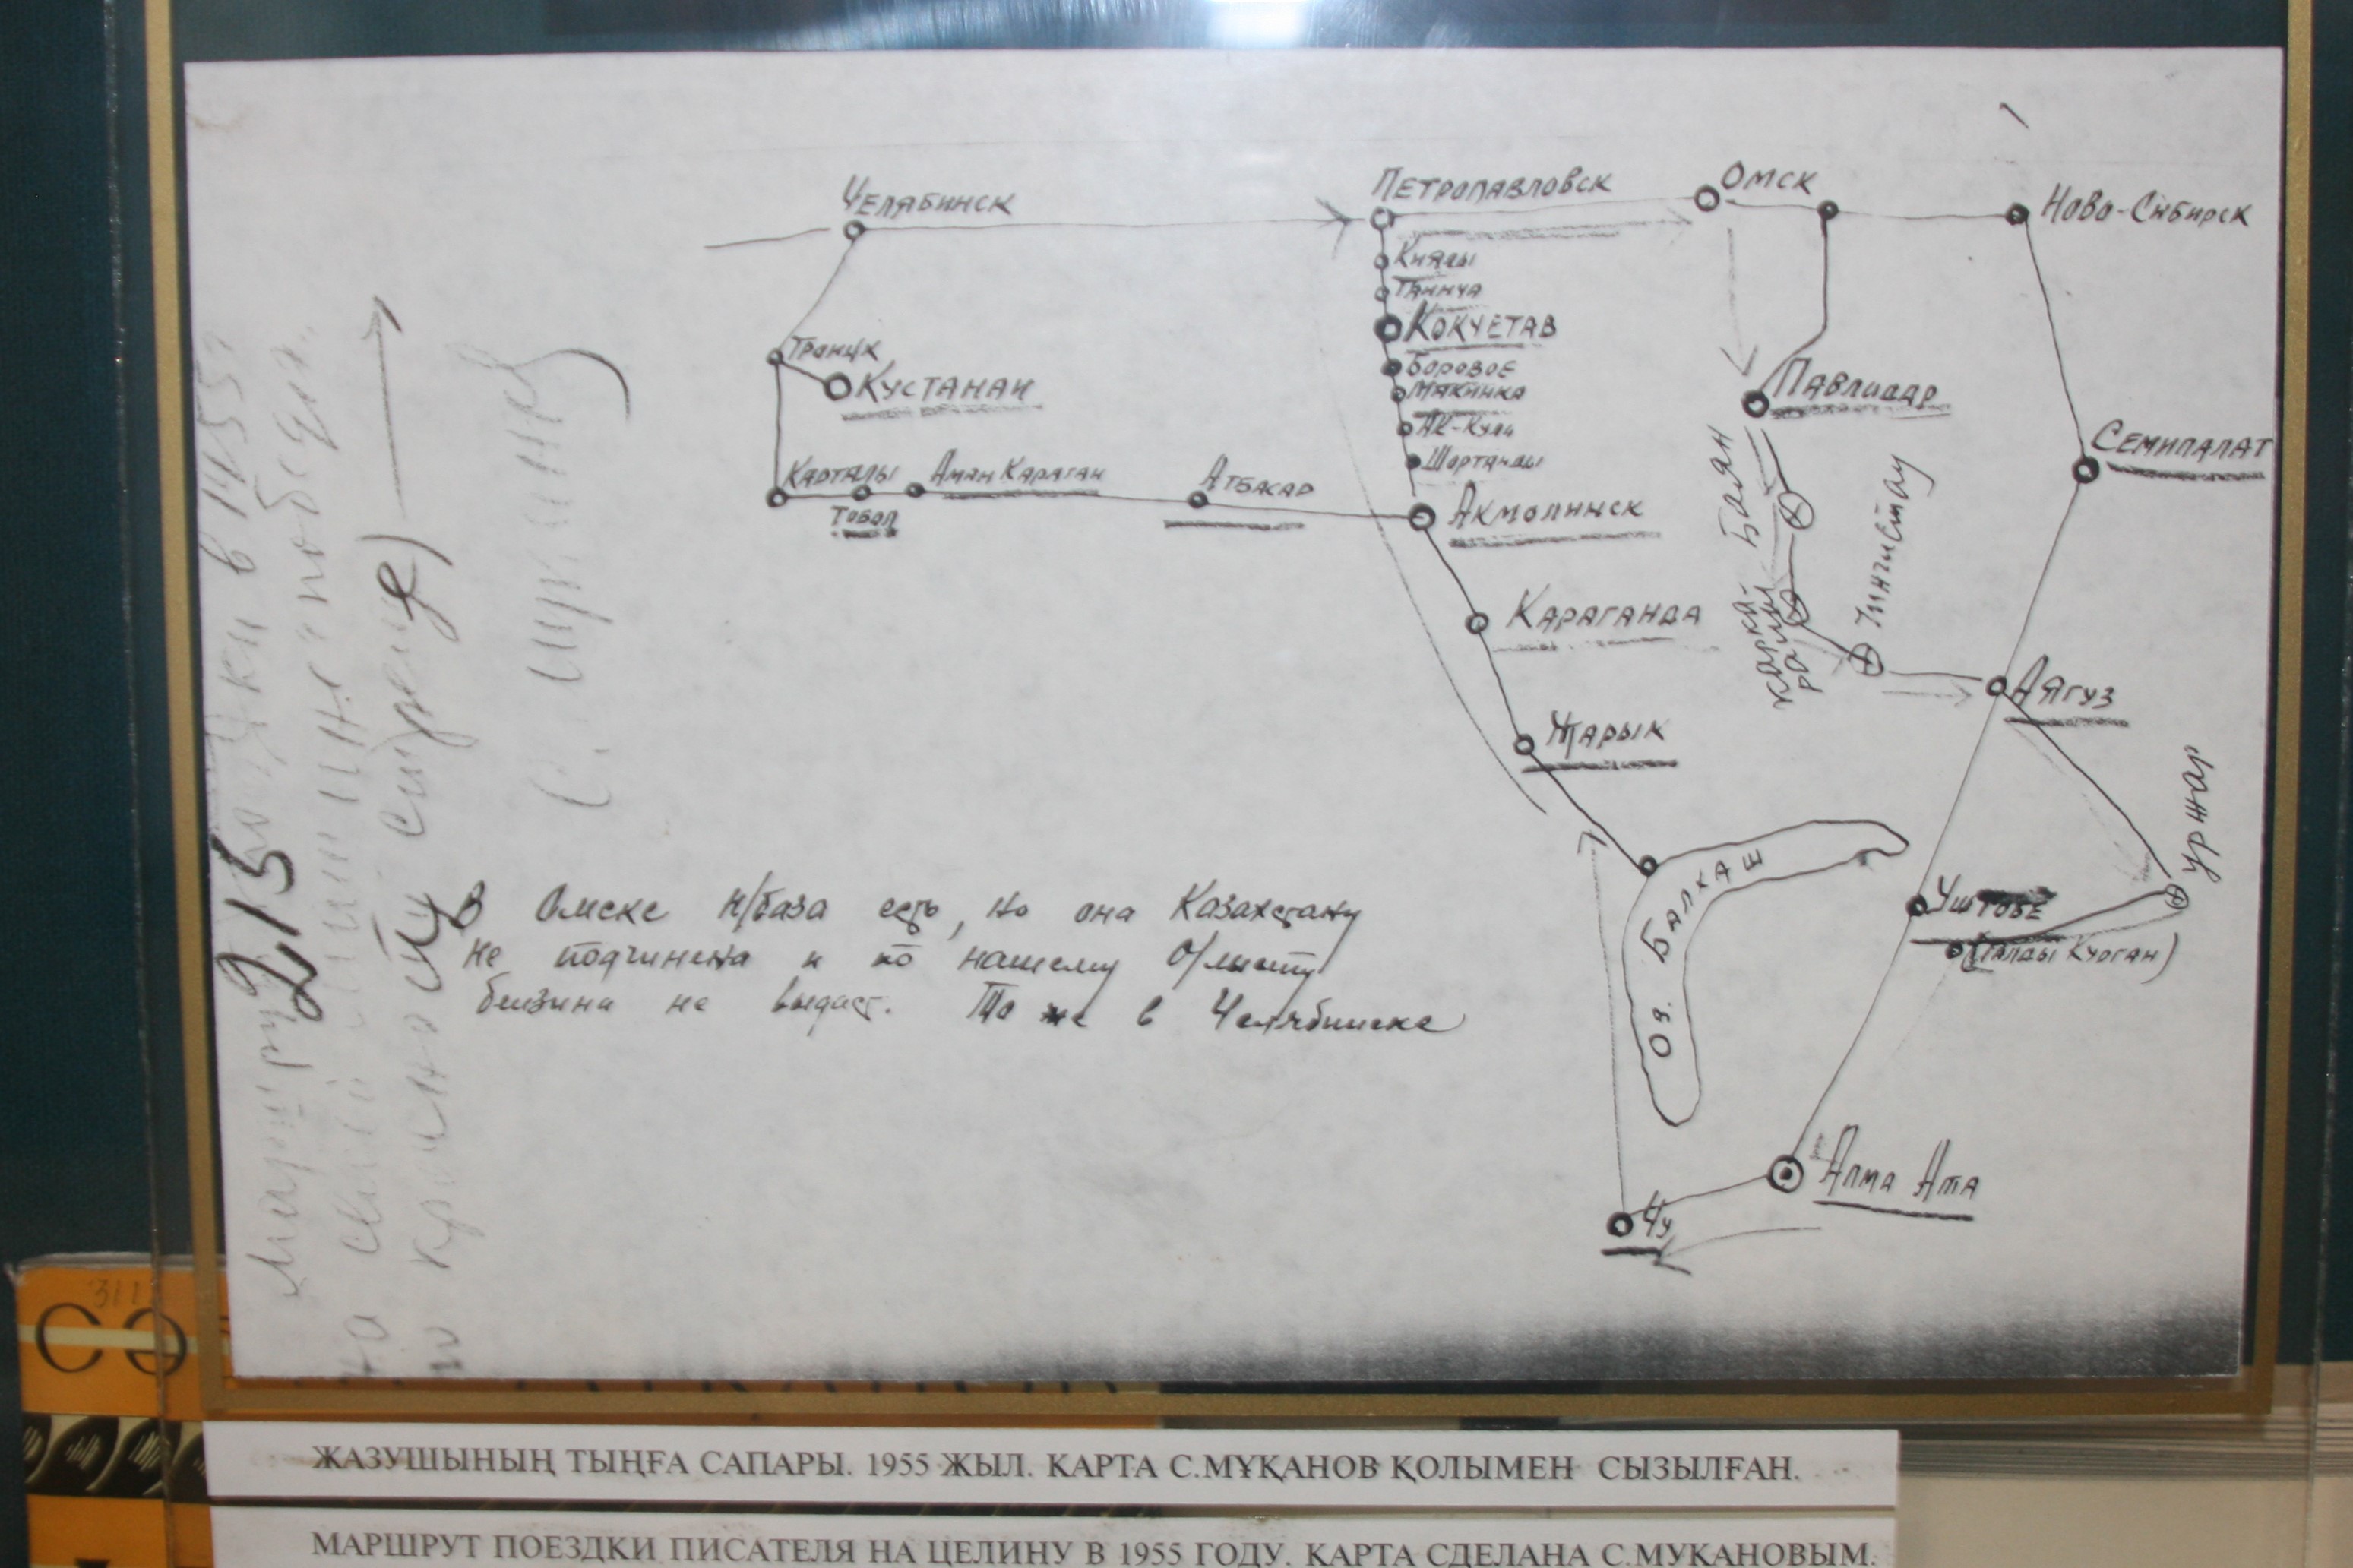 Челябинск
Петропавловск
Омск
Ново-Сибирск
Киялы
Таинча
Кокчетав
Боровое
Макинка
Ак-Куль
Шортанды
Троицк
Кустанаи
Павлодар
Семипалат
Карталы
Тобол
Аман Караган
Атбасар
Акмолинск
Баян
Каркаралы
Чингистау
Караганда
Аягуз
Жарык
Уржар
Оз. Балкаш
Уштобе
(Талды Курган)
Алма Ата
Чу
В Омске н/база есть, но она Казахстану
не подчинена и по нашему
бензина не выдаст. То же в Челябинске
Маршрут поездки в 1955
на своей машине "победа"
по красному
С. Муканов
215
311
СӘ
ЖАЗУШЫНЫҢ ТЫҢҒА САПАРЫ. 1955 ЖЫЛ. КАРТА С.МҰҚАНОВ ҚОЛЫМЕН СЫЗЫЛҒАН.
МАРШРУТ ПОЕЗДКИ ПИСАТЕЛЯ НА ЦЕЛИНУ В 1955 ГОДУ. КАРТА СДЕЛАНА С.МУКАНОВЫМ.